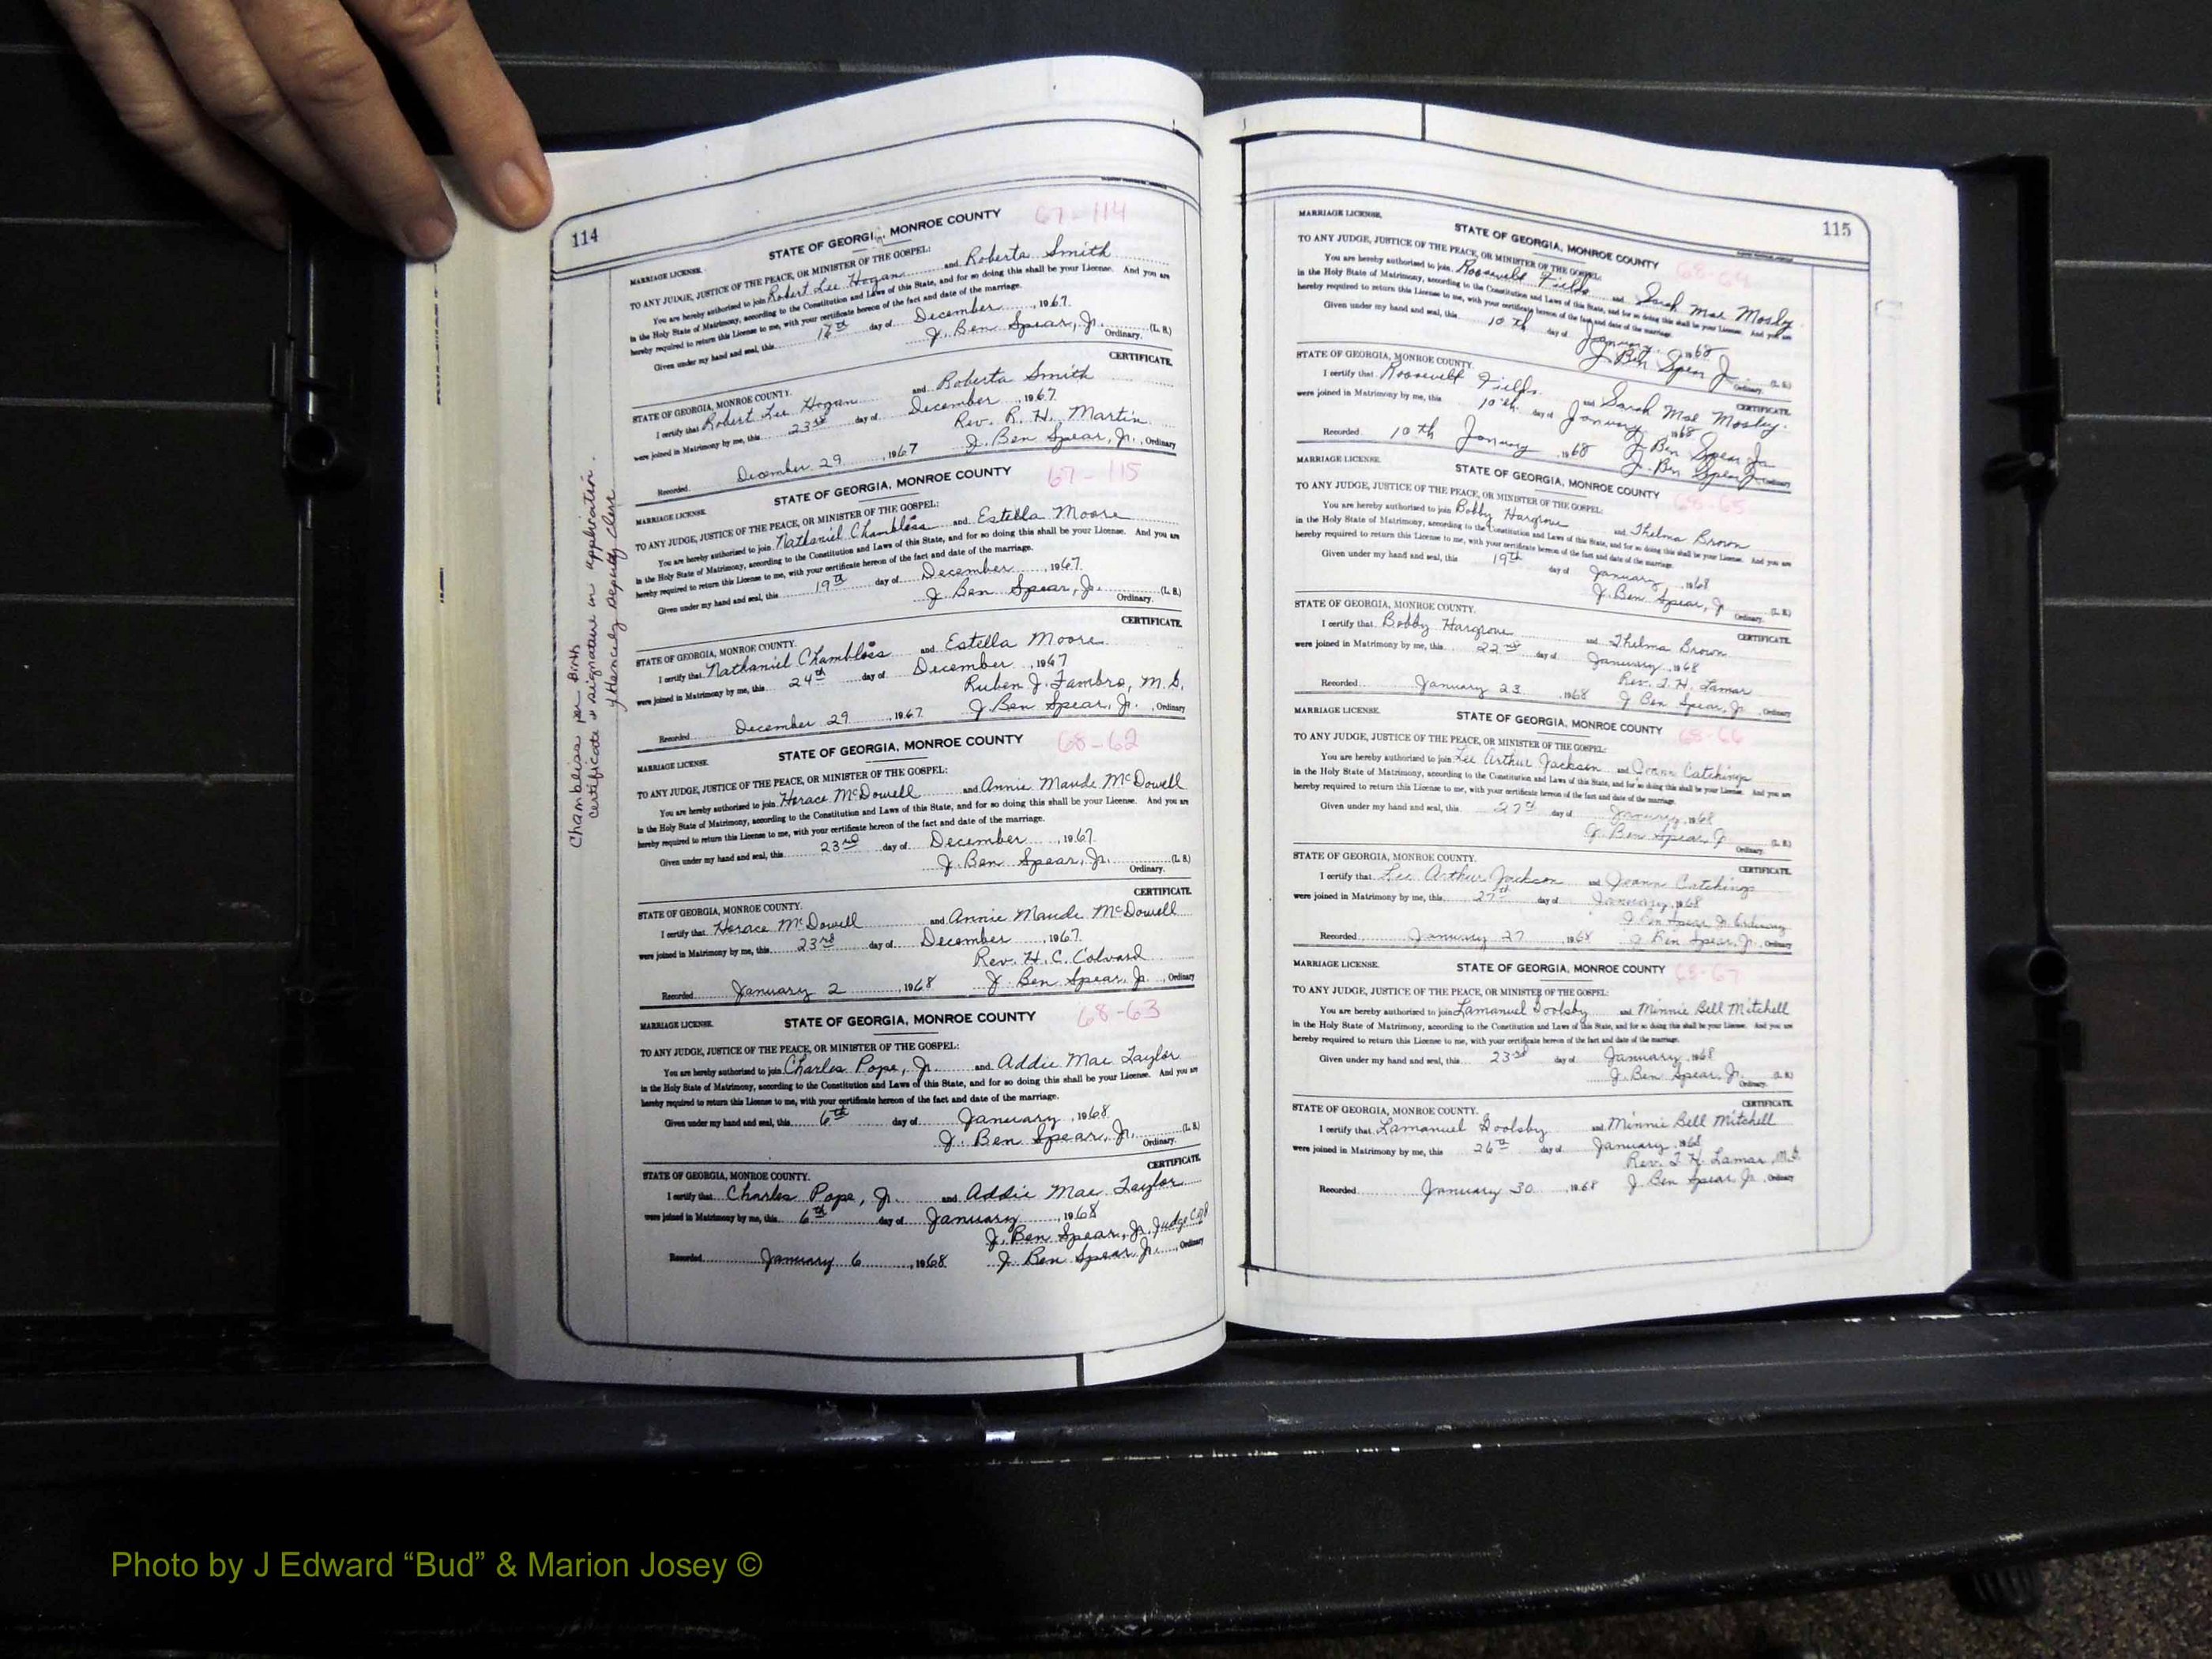 114
STATE OF GEORGIA, MONROE COUNTY 67-114
MARRIAGE LICENSE.
TO ANY JUDGE, JUSTICE OF THE PEACE, OR MINISTER OF THE GOSPEL:
You are hereby authorized to join Robert Lee Hogan and Roberta Smith
in the Holy State of Matrimony, according to the Constitution and Laws of this State, and for so doing this shall be your License. And you are
hereby required to return this License to me, with your certificate hereon of the fact and date of the marriage.
Given under my hand and seal, this day of December, 1967.
J. Ben Spear, Jr. (L. S.)
Ordinary.
CERTIFICATE.
STATE OF GEORGIA, MONROE COUNTY.
I certify that Robert Lee Hogan and Roberta Smith
were joined in Matrimony by me, this 23rd day of December, 1967.
Rev. R. H. Martin
Recorded December 29, 1967 J. Ben Spear, Jr., Ordinary
STATE OF GEORGIA, MONROE COUNTY 67-115
MARRIAGE LICENSE.
TO ANY JUDGE, JUSTICE OF THE PEACE, OR MINISTER OF THE GOSPEL:
You are hereby authorized to join Nathaniel Chambliss and Estella Moore
in the Holy State of Matrimony, according to the Constitution and Laws of this State, and for so doing this shall be your License. And you are
hereby required to return this License to me, with your certificate hereon of the fact and date of the marriage.
Given under my hand and seal, this 19th day of December, 1967.
J. Ben Spear, Jr. (L. S.)
Ordinary.
CERTIFICATE.
STATE OF GEORGIA, MONROE COUNTY.
I certify that Nathaniel Chambliss and Estella Moore
were joined in Matrimony by me, this 24th day of December, 1967
Ruben J. Fambro, M.G.
Recorded December 29, 1967. J. Ben Spear, Jr., Ordinary
Chambliss per Birth
certificate & signature in application.
Deputy Clerk
STATE OF GEORGIA, MONROE COUNTY 68-62
MARRIAGE LICENSE.
TO ANY JUDGE, JUSTICE OF THE PEACE, OR MINISTER OF THE GOSPEL:
You are hereby authorized to join Horace McDowell and Annie Maude McDowell
in the Holy State of Matrimony, according to the Constitution and Laws of this State, and for so doing this shall be your License. And you are
hereby required to return this License to me, with your certificate hereon of the fact and date of the marriage.
Given under my hand and seal, this 23rd day of December, 1967.
J. Ben Spear, Jr. (L. S.)
Ordinary.
CERTIFICATE.
STATE OF GEORGIA, MONROE COUNTY.
I certify that Horace McDowell and Annie Maude McDowell
were joined in Matrimony by me, this 23rd day of December, 1967.
Rev. H. C. Colvard
Recorded January 2, 1968 J. Ben Spear, Jr., Ordinary
STATE OF GEORGIA, MONROE COUNTY 68-63
MARRIAGE LICENSE.
TO ANY JUDGE, JUSTICE OF THE PEACE, OR MINISTER OF THE GOSPEL:
You are hereby authorized to join Charles Pope, Jr. and Addie Mae Taylor
in the Holy State of Matrimony, according to the Constitution and Laws of this State, and for so doing this shall be your License. And you are
hereby required to return this License to me, with your certificate hereon of the fact and date of the marriage.
Given under my hand and seal, this 6th day of January, 1968
J. Ben Spear, Jr. (L. S.)
Ordinary.
CERTIFICATE.
STATE OF GEORGIA, MONROE COUNTY.
I certify that Charles Pope, Jr. and Addie Mae Taylor
were joined in Matrimony by me, this 6th day of January, 1968
J. Ben Spear, Jr. Judge
Recorded January 6, 1968 J. Ben Spear, Jr., Ordinary
115
MARRIAGE LICENSE.
STATE OF GEORGIA, MONROE COUNTY 68-64
TO ANY JUDGE, JUSTICE OF THE PEACE, OR MINISTER OF THE GOSPEL:
You are hereby authorized to join Roosevelt Fields and Sarah Mae Mosley
in the Holy State of Matrimony, according to the Constitution and Laws of this State, and for so doing this shall be your License. And you are
hereby required to return this License to me, with your certificate hereon of the fact and date of the marriage.
Given under my hand and seal, this 10th day of January, 1968
J. Ben Spear Jr. (L. S.)
Ordinary.
CERTIFICATE.
STATE OF GEORGIA, MONROE COUNTY.
I certify that Roosevelt Fields and Sarah Mae Mosley.
were joined in Matrimony by me, this 10th day of January, 1968
J. Ben Spear Jr.
Recorded 10th January, 1968 J. Ben Spear Jr. Ordinary
MARRIAGE LICENSE.
STATE OF GEORGIA, MONROE COUNTY 68-65
TO ANY JUDGE, JUSTICE OF THE PEACE, OR MINISTER OF THE GOSPEL:
You are hereby authorized to join Bobby Hargrove and Thelma Brown
in the Holy State of Matrimony, according to the Constitution and Laws of this State, and for so doing this shall be your License. And you are
hereby required to return this License to me, with your certificate hereon of the fact and date of the marriage.
Given under my hand and seal, this 19th day of January, 1968
J. Ben Spear, Jr (L. S.)
Ordinary.
CERTIFICATE.
STATE OF GEORGIA, MONROE COUNTY.
I certify that Bobby Hargrove and Thelma Brown
were joined in Matrimony by me, this 22nd day of January, 1968
Rev. T. H. Lamar
Recorded January 23, 1968 J Ben Spear, Jr., Ordinary
MARRIAGE LICENSE.
STATE OF GEORGIA, MONROE COUNTY 68-66
TO ANY JUDGE, JUSTICE OF THE PEACE, OR MINISTER OF THE GOSPEL:
You are hereby authorized to join Lee Arthur Jackson and Joann Catchings
in the Holy State of Matrimony, according to the Constitution and Laws of this State, and for so doing this shall be your License. And you are
hereby required to return this License to me, with your certificate hereon of the fact and date of the marriage.
Given under my hand and seal, this 27th day of January, 1968
J. Ben Spear Jr (L. S.)
Ordinary.
CERTIFICATE.
STATE OF GEORGIA, MONROE COUNTY.
I certify that Lee Arthur Jackson and Joann Catchings
were joined in Matrimony by me, this 27th day of January, 1968
J. Ben Spear Jr. Ordinary
Recorded January 27, 1968 J Ben Spear, Jr., Ordinary
MARRIAGE LICENSE.
STATE OF GEORGIA, MONROE COUNTY 68-67
TO ANY JUDGE, JUSTICE OF THE PEACE, OR MINISTER OF THE GOSPEL:
You are hereby authorized to join Lamanuel Goolsby and Minnie Bell Mitchell
in the Holy State of Matrimony, according to the Constitution and Laws of this State, and for so doing this shall be your License. And you are
hereby required to return this License to me, with your certificate hereon of the fact and date of the marriage.
Given under my hand and seal, this 23rd day of January, 1968
J. Ben Spear, Jr. (L. S.)
Ordinary.
CERTIFICATE.
STATE OF GEORGIA, MONROE COUNTY.
I certify that Lamanuel Goolsby and Minnie Bell Mitchell
were joined in Matrimony by me, this 26th day of January, 1968
Rev. T. H. Lamar, M.G.
Recorded January 30, 1968 J. Ben Spear Jr., Ordinary
Photo by J Edward “Bud” & Marion Josey ©